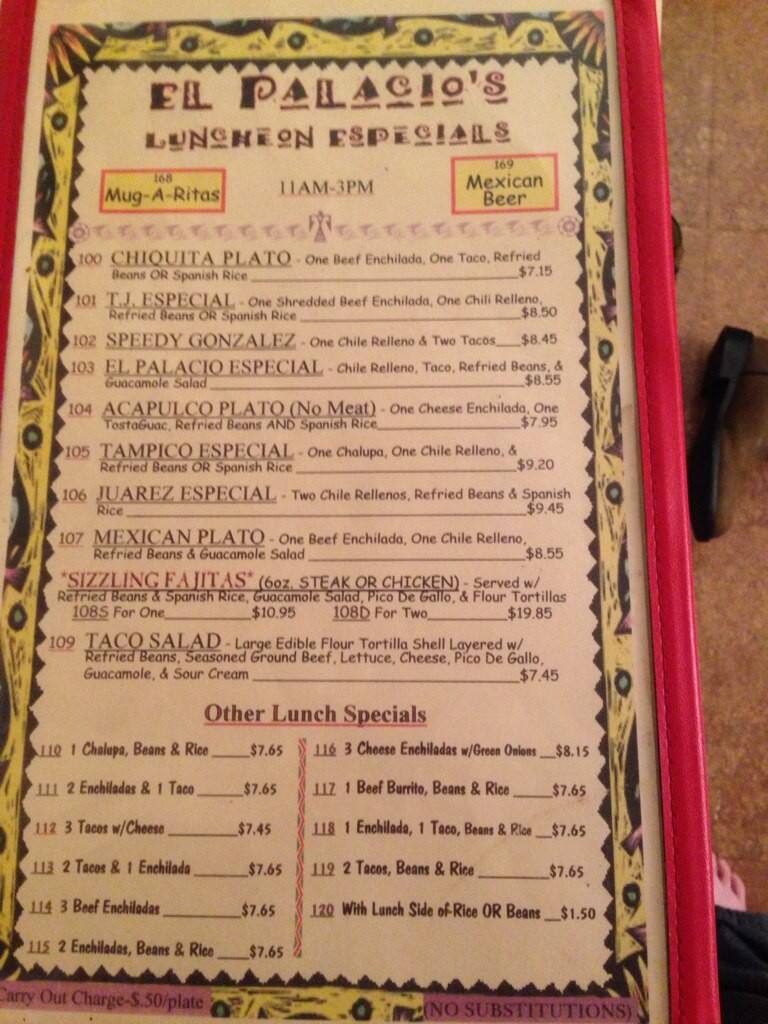 EL PALACIO'S
LUNCHEON ESPECIALS
168
Mug-A-Ritas
11AM-3PM
169
Mexican
Beer
100 CHIQUITA PLATO - One Beef Enchilada, One Taco, Refried
Beans OR Spanish Rice $7.15
101 T.J. ESPECIAL - One Shredded Beef Enchilada, One Chili Relleno,
Refried Beans OR Spanish Rice $8.50
102 SPEEDY GONZALEZ - One Chile Relleno & Two Tacos $8.45
103 EL PALACIO ESPECIAL - Chile Relleno, Taco, Refried Beans, &
Guacamole Salad $8.55
104 ACAPULCO PLATO (No Meat) - One Cheese Enchilada, One
TostaGuac, Refried Beans AND Spanish Rice $7.95
105 TAMPICO ESPECIAL - One Chalupa, One Chile Relleno, &
Refried Beans OR Spanish Rice $9.20
106 JUAREZ ESPECIAL - Two Chile Rellenos, Refried Beans & Spanish
Rice $9.45
107 MEXICAN PLATO - One Beef Enchilada, One Chile Relleno,
Refried Beans & Guacamole Salad $8.55
"SIZZLING FAJITAS" (6oz. STEAK OR CHICKEN) - Served w/
Refried Beans & Spanish Rice, Guacamole Salad, Pico De Gallo, & Flour Tortillas
108S For One $10.95 108D For Two $19.85
109 TACO SALAD - Large Edible Flour Tortilla Shell Layered w/
Refried Beans, Seasoned Ground Beef, Lettuce, Cheese, Pico De Gallo,
Guacamole, & Sour Cream $7.45
Other Lunch Specials
110 1 Chalupa, Beans & Rice $7.65
111 2 Enchiladas & 1 Taco $7.65
112 3 Tacos w/Cheese $7.45
113 2 Tacos & 1 Enchilada $7.65
114 3 Beef Enchiladas $7.65
115 2 Enchiladas, Beans & Rice $7.65
116 3 Cheese Enchiladas w/Green Onions $8.15
117 1 Beef Burrito, Beans & Rice $7.65
118 1 Enchilada, 1 Taco, Beans & Rice $7.65
119 2 Tacos, Beans & Rice $7.65
120 With Lunch Side of-Rice OR Beans $1.50
Carry Out Charge-$.50/plate
(NO SUBSTITUTIONS)